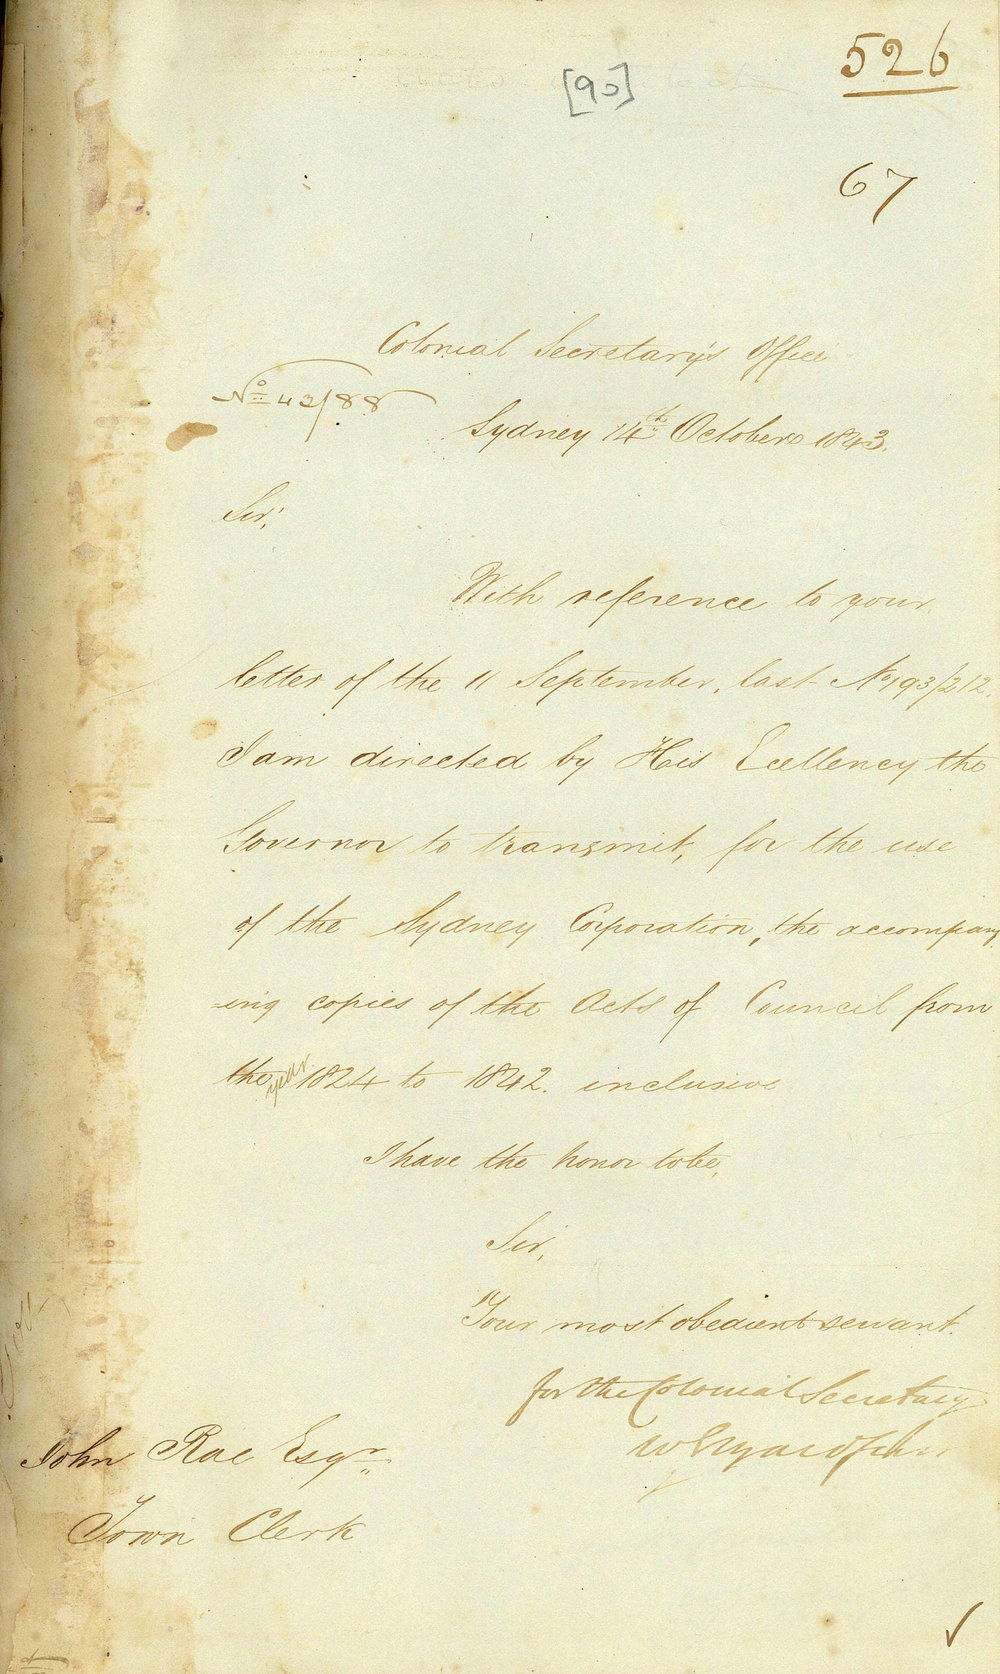 526
[90]
67
Colonial Secretary's Office
No 43/88
Sydney 14th October 1843.
Sir,
With reference to your
letter of the 11 September, last No 193/212.
I am directed by His Exellency the
Governor to transmit, for the use
of the Sydney Corporation, the accompany
ing copies of the Acts of Council from
the year 1824 to 1842. inclusive
I have the honor to be,
Sir,
Your most obedient servant.
for the Colonial Secretary
John Rae Esqr.
Town Clerk